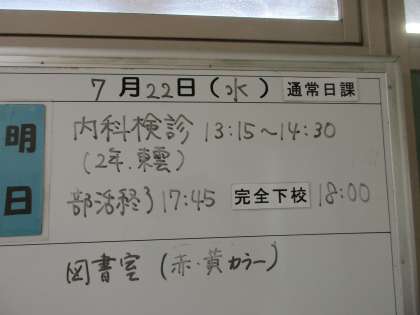 7月22日(水) 通常日課
明日
内科検診 13:15~14:30
(2年.東雲)
部活終了 17:45 完全下校 18:00
図書室 (赤・黄カラー)